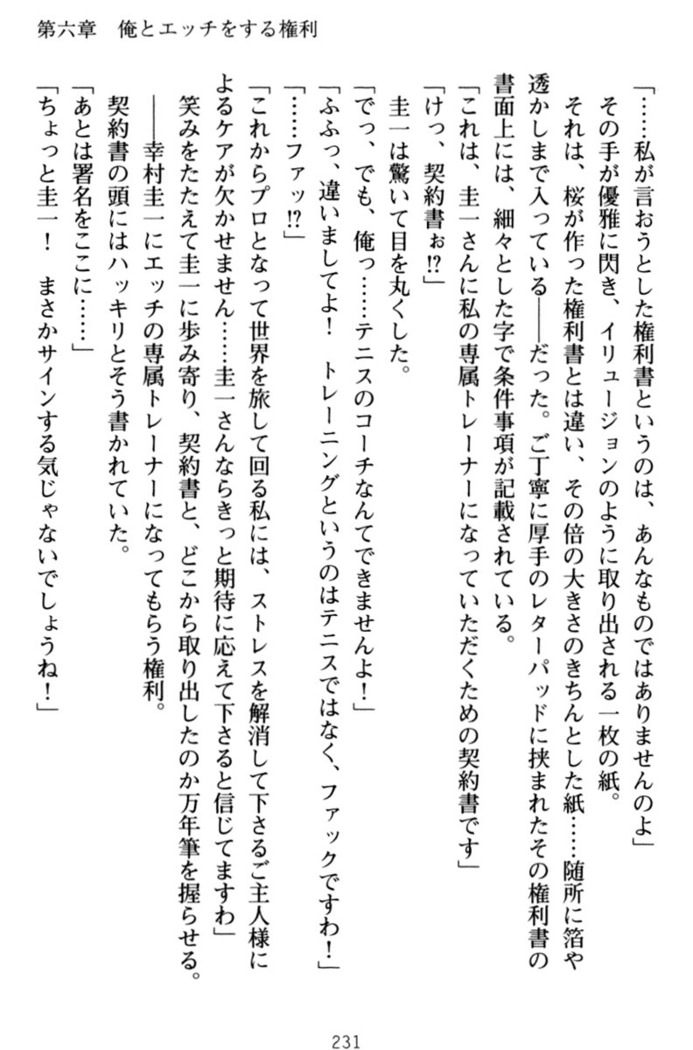 第六章　俺とエッチをする権利
「……私が言おうとした権利書というのは、あんなものではありませんのよ」
その手が優雅に閃き、イリュージョンのように取り出される一枚の紙。
それは、桜が作った権利書とは違い、その倍の大きさのきちんとした紙……随所に箔や
透かしまで入っている――だった。ご丁寧に厚手のレターパッドに挟まれたその権利書の
書面上には、細々とした字で条件事項が記載されている。
「これは、圭一さんに私の専属トレーナーになっていただくための契約書です」
「けっ、契約書ぉ!?」
圭一は驚いて目を丸くした。
「でっ、でも、俺っ……テニスのコーチなんてできませんよ！」
「ふふっ、違いましてよ！　トレーニングというのはテニスではなく、ファックですわ！」
「……ファッ!?」
「これからプロとなって世界を旅して回る私には、ストレスを解消して下さるご主人様に
よるケアが欠かせません……圭一さんならきっと期待に応えて下さると信じてますわ」
笑みをたたえて圭一に歩み寄り、契約書と、どこから取り出したのか万年筆を握らせる。
――幸村圭一にエッチの専属トレーナーになってもらう権利。
契約書の頭にはハッキリとそう書かれていた。
「あとは署名をここに……」
「ちょっと圭一！　まさかサインする気じゃないでしょうね！」
231